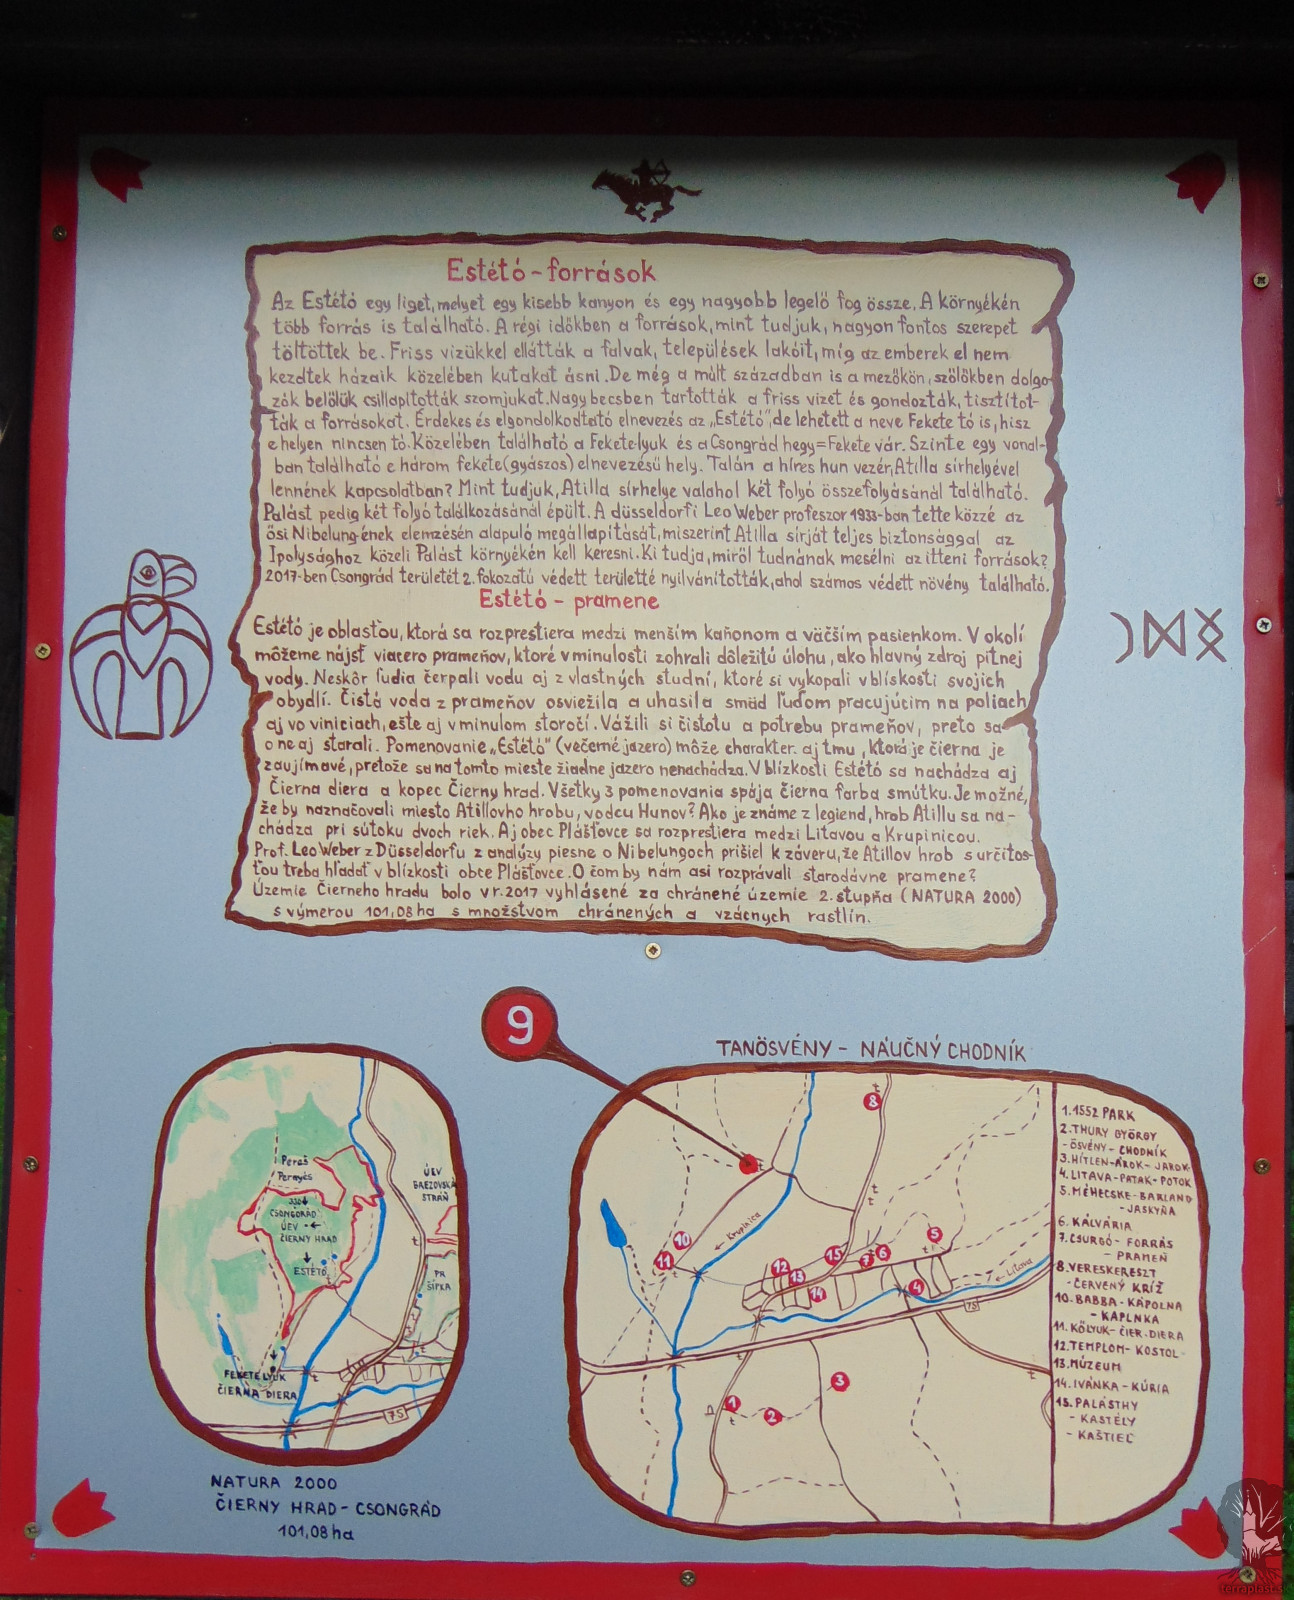 Estétó-források
Az Estétó egy liget, melyet egy kisebb kanyon és egy nagyobb legelő fog össze. A környékén
több forrás is található. A régi időkben a források, mint tudjuk, nagyon fontos szerepet
töltöttek be. Friss vizükkel ellátták a falvak, települések lakóit, míg az emberek el nem
kezdtek házaik közelében kutakat ásni. De még a múlt században is a mezőkön, szőlőkben dolgo-
zók belőlük csillapították szomjukat. Nagy becsben tartották a friss vizet és gondozták, tisztítot-
ták a forrásokat. Érdekes és elgondolkodtató elnevezés az „Estétó", de lehetett a neve Fekete tó is, hisz
e helyen nincsen tó. Közelében található a Fekete-lyuk és a Csongrád hegy=Fekete vár. Szinte egy vonal-
ban található e három fekete (gyászos) elnevezésű hely. Talán a híres hun vezér, Atilla sírhelyével
lennének kapcsolatban? Mint tudjuk, Atilla sírhelye valahol két folyó összefolyásánál található.
Palást pedig két folyó találkozásánál épült. A düsseldorfi Leo Weber professzor 1933-ban tette közzé az
ősi Nibelung-ének elemzésén alapuló megállapítását, miszerint Atilla sírját teljes biztonsággal az
Ipolysághoz közeli Palást környékén kell keresni. Ki tudja, miről tudnának mesélni az itteni források?
2017-ben Csongrád területét 2. fokozatú védett területté nyilvánították, ahol számos védett növény található.
Estétó - pramene
Estétó je oblasťou, ktorá sa rozprestiera medzi menším kaňonom a väčším pasienkom. V okolí
môžeme nájsť viacero prameňov, ktoré v minulosti zohrali dôležitú úlohu, ako hlavný zdroj pitnej
vody. Neskôr ľudia čerpali vodu aj z vlastných studní, ktoré si vykopali v blískosti svojich
obydlí. Čistá voda z prameňov osviežila a uhasila smäd ľuďom pracujúcim na poliach
aj vo viniciach, ešte aj v minulom storočí. Vážili si čistotu a potrebu prameňov, preto sa
o ne aj starali. Pomenovanie „Estétó" (večerné jazero) môže charakter. aj tmu, ktorá je čierna je
zaujímavé, pretože sa na tomto mieste žiadne jazero nenachádza. V blízkosti Estétó sa nachádza aj
Čierna diera a kopec Čierny hrad. Všetky 3 pomenovania spája čierna farba smútku. Je možné,
že by naznačovali miesto Atillovho hrobu, vodcu Hunov? Ako je známe z legiend, hrob Atillu sa na-
chádza pri sútoku dvoch riek. Aj obec Plášťovce sa rozprestiera medzi Litavou a Krupinicou.
Prof. Leo Weber z Düsseldorfu z analýzy piesne o Nibelungoch prišiel k záveru, že Atillov hrob s určitos-
ťou treba hľadať v blízkosti obce Plášťovce. O čom by nám asi rozprávali starodávne pramene?
Územie Čierneho hradu bolo v r. 2017 vyhlásené za chránené územie 2. stupňa (NATURA 2000)
s výmerou 101,08 ha s množstvom chránených a vzácnych rastlín.
9
TANÖSVÉNY - NÁUČNÝ CHODNÍK
1. 1552 PARK
2. THURY GYÖRGY
- ÖSVÉNY - CHODNÍK
3. HITLEN-ÁROK - JAROK
4. LITAVA-PATAK-POTOK
5. MÉHECSKE-BARLANG
- JASKYŇA
6. KÁLVÁRIA
7. CSURGÓ- FORRÁS
- PRAMEŇ
8. VERESKERESZT
- ČERVENÝ KRÍŽ
10. BABBA-KÁPOLNA
- KAPLNKA
11. KŐLYUK- ČIER. DIERA
12. TEMPLOM-KOSTOL
13. MÚZEUM
14. IVÁNKA - KÚRIA
15. PALÁSTHY
- KASTÉLY
- KAŠTIEĽ
8
10
11
12
13
14
15
7
6
5
4
3
1
2
Krupinica
Litava
75
t
Pereš
Pernyés
330
CSONGRÁD
ÚEV
ČIERNY HRAD
ESTÉTÓ
ÚEV
BREZOVSKÁ
STRÁŇ
PR
ŠÍPKA
FEKETE LYUK
ČIERNA DIERA
75
NATURA 2000
ČIERNY HRAD - CSONGRÁD
101,08 ha
terraplast.sk